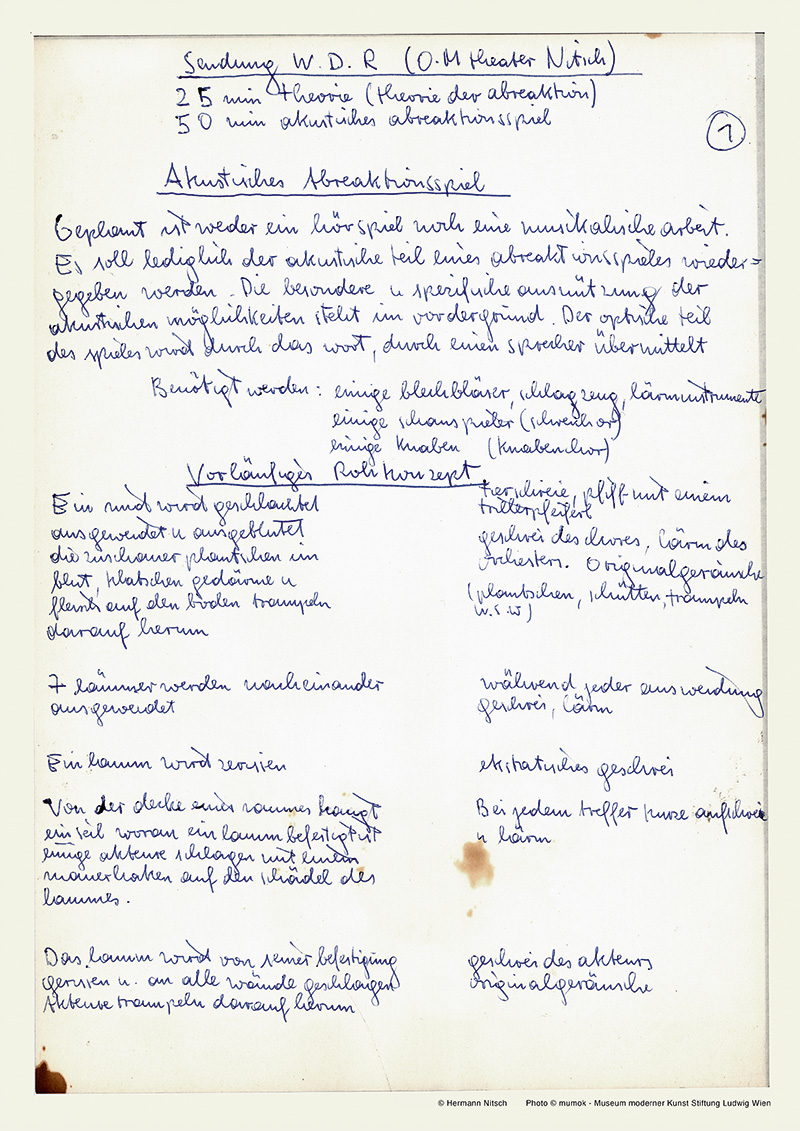 Sendung W.D.R (O.M theater Nitsch)
25 min theorie (theorie der abreaktion)
50 min akustisches abreaktionsspiel
1
Akustisches Abreaktionsspiel
Geplant ist weder ein hörspiel noch eine musikalische arbeit.
Es soll lediglich der akustische teil eines abreaktionsspieles wieder=
gegeben werden. Die besondere u spezifische ausnützung der
akustischen möglichkeiten steht im vordergrund. Der optische teil
des spieles wird durch das wort, durch einen sprecher übermittelt
Benötigt werden: einige blechbläser, schlagzeug, lärminstrumente
einige schauspieler (schreichor)
einige Knaben (Knabenchor)
Vorläufiges Rohkonzept
Ein rind wird geschlachtet
ausgeweidet u ausgeblutet
die zuschauer plantschen im
blut, klatschen gedärme u
fleisch auf den boden trampeln
darauf herum
tierschreie, pfiff mit einem
trillerpfeiferl
geschrei des chores, lärm des
orchesters. Originalgeräusche
(plantschen, schütten, trampeln
u.s.w)
7 lämmer werden nacheinander
ausgeweidet
während jeder ausweidung
geschrei, lärm
Ein lamm wird zerrissen
ekstatisches geschrei
Von der decke eines raumes hängt
ein seil woran ein lamm befestigt ist
einige akteure schlagen mit einem
mauerhaken auf den schädel des
lammes.
Bei jedem treffer kurze aufschreie
u lärm
Das lamm wird von seiner befestigung
gerissen u. an alle wände geschlagen
Akteure trampeln darauf herum
geschrei des akteurs
originalgeräusche
© Hermann Nitsch Photo © mumok - Museum moderner Kunst Stiftung Ludwig Wien